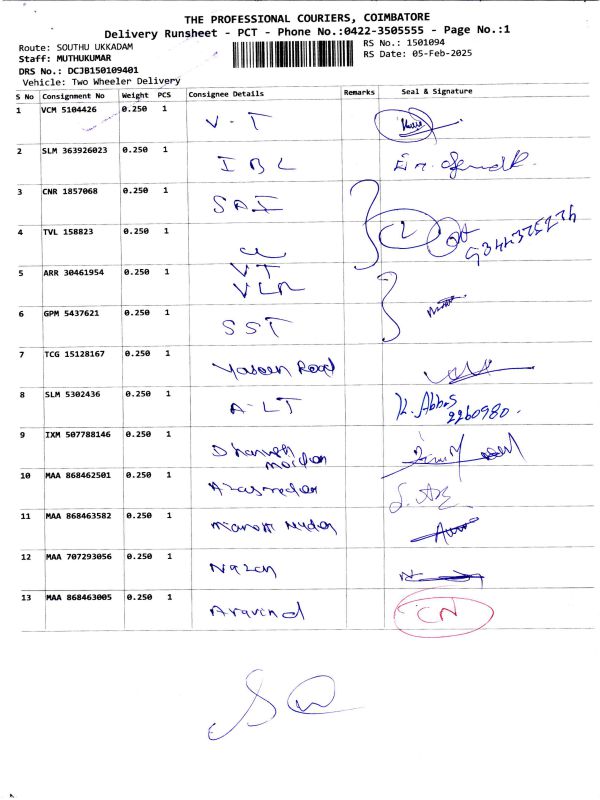 THE PROFESSIONAL COURIERS, COIMBATORE
Delivery Runsheet - PCT - Phone No.:0422-3505555 - Page No.:1
Route: SOUTHU UKKADAM
RS No.: 1501094
Staff: MUTHUKUMAR
RS Date: 05-Feb-2025
DRS No.: DCJB150109401
Vehicle: Two Wheeler Delivery
S No Consignment No Weight PCS Consignee Details Remarks Seal & Signature
1 VCM 5104426 0.250 1 V-T
2 SLM 363926023 0.250 1 IBL
3 CNR 1857068 0.250 1 SAI
4 TVL 158823 0.250 1 2 9344375274
5 ARR 30461954 0.250 1 VT
VLR
6 GPM 5437621 0.250 1 SST
7 TCG 15128167 0.250 1 Yaseen Road
8 SLM 5302436 0.250 1 A-LT K. Abbas
2260980.
9 IXM 507788146 0.250 1
10 MAA 868462501 0.250 1
11 MAA 868463582 0.250 1
12 MAA 707293056 0.250 1 Nazan
13 MAA 868463005 0.250 1 Aravind CN